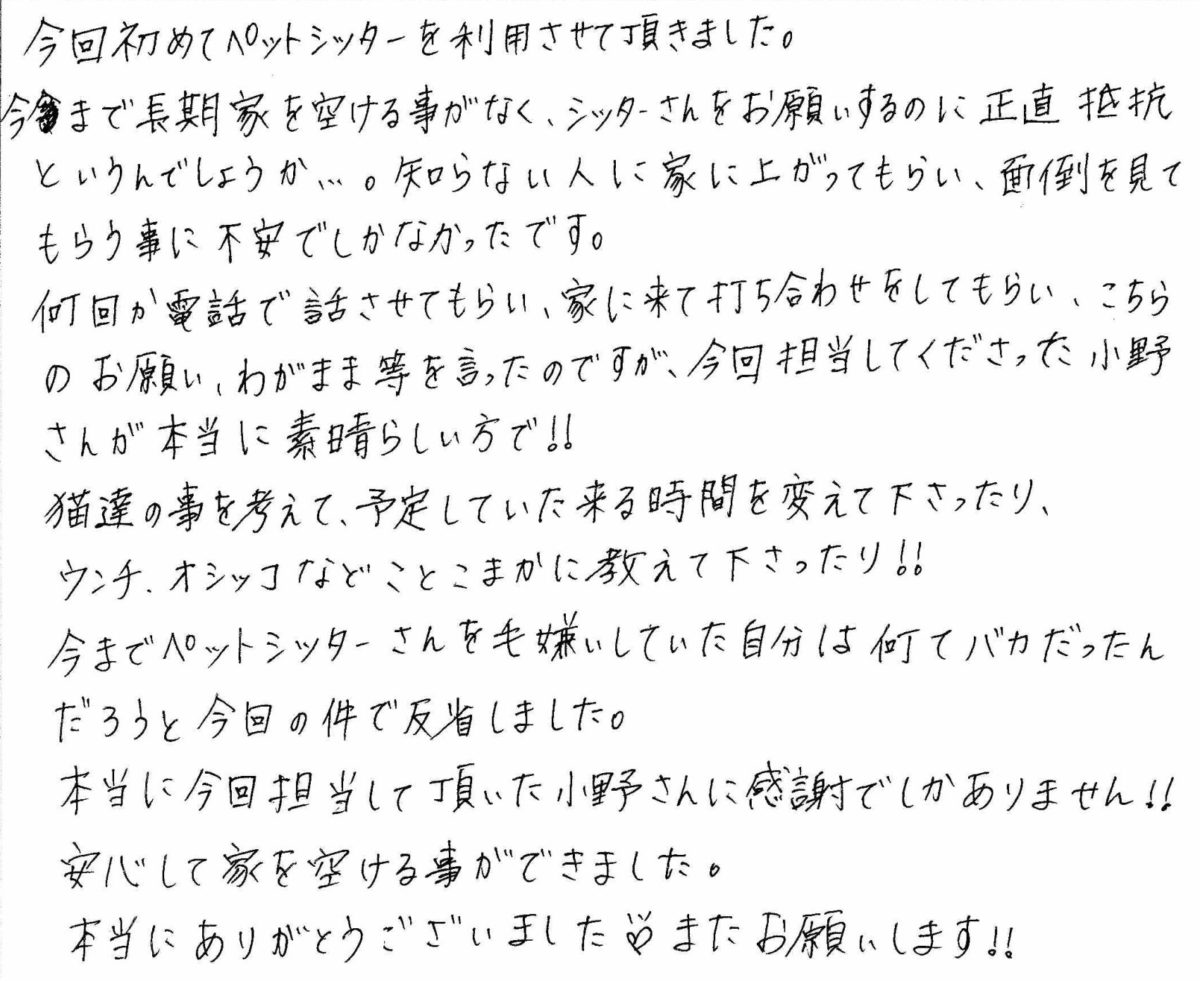 今回初めてペットシッターを利用させて頂きました。
今まで長期家を空ける事がなく、シッターさんをお願いするのに正直抵抗
というんでしょうか…。知らない人に家に上がってもらい、面倒を見て
もらう事に不安でしかなかったです。
何回か電話で話させてもらい、家に来て打ち合わせをしてもらい、こちら
のお願い、わがまま等を言ったのですが、今回担当してくださった小野
さんが本当に素晴らしい方で!!
猫達の事を考えて、予定していた来る時間を変えて下さったり、
ウンチ、オシッコなどことこまかに教えて下さったり!!
今までペットシッターさんを毛嫌いしていた自分は何てバカだったん
だろうと今回の件で反省しました。
本当に今回担当して頂いた小野さんに感謝でしかありません!!
安心して家を空ける事ができました。
本当にありがとうございました♡またお願いします!!